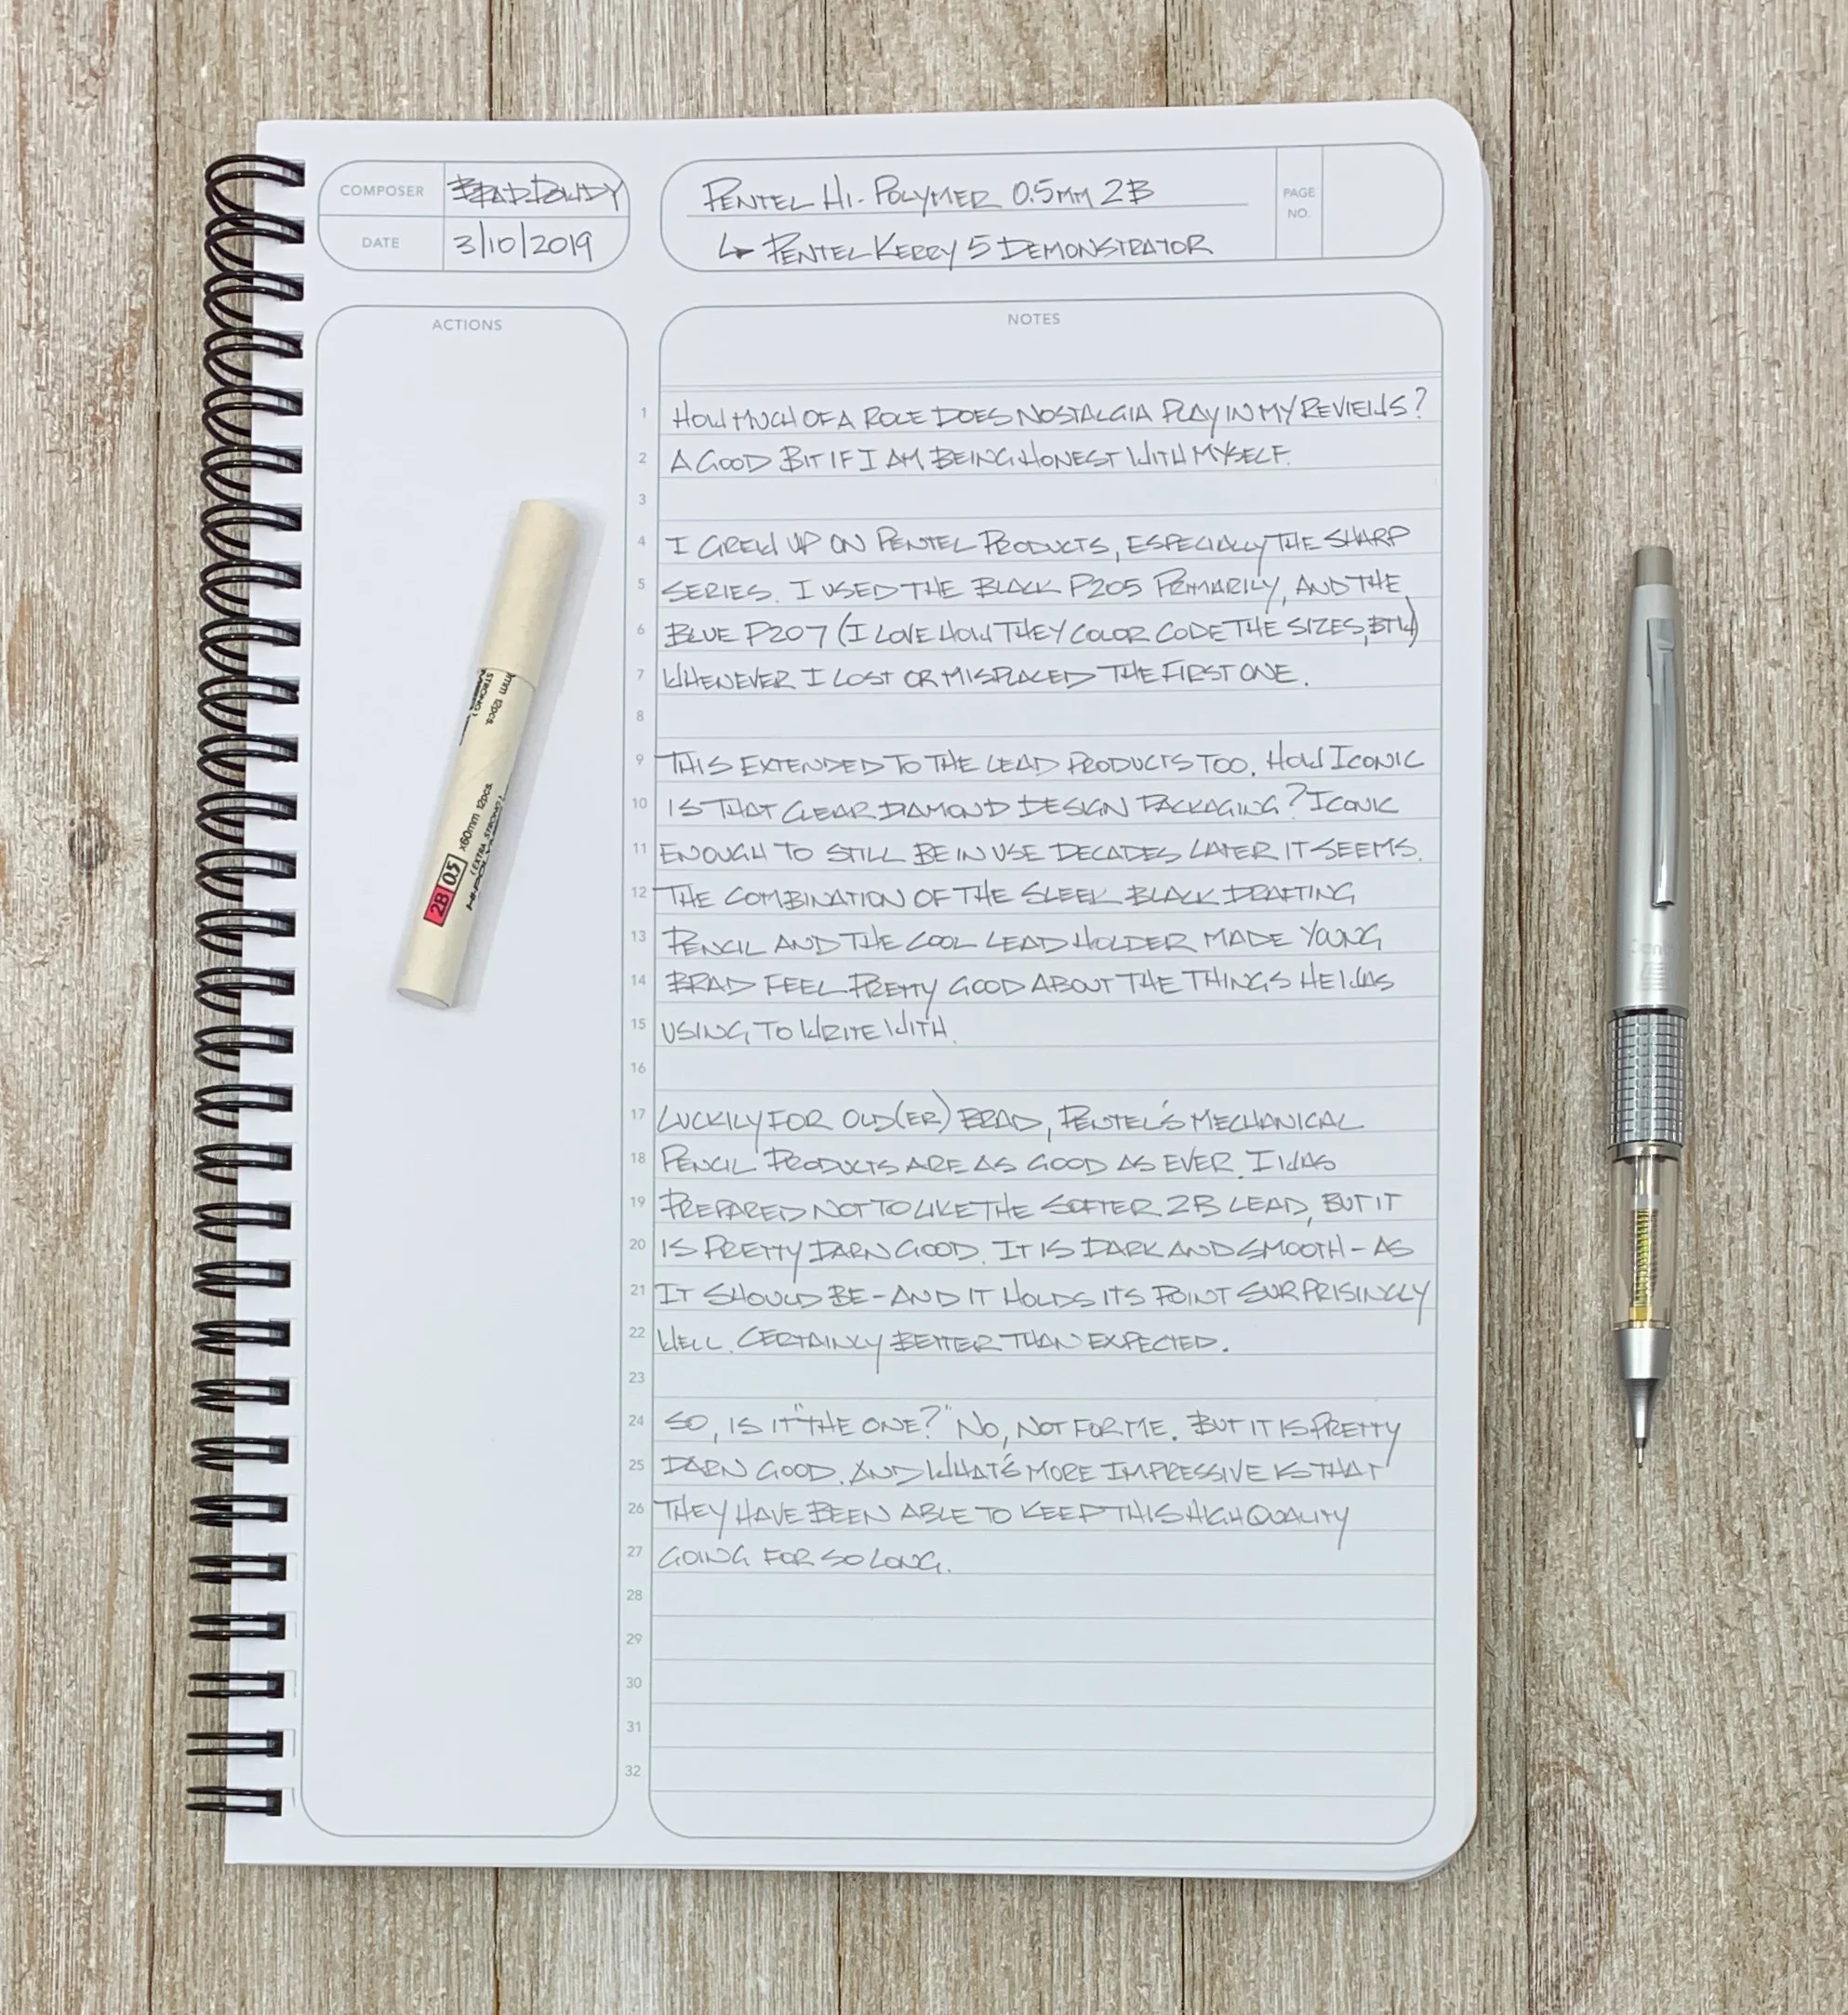 COMPOSER BRAD DOWDY
DATE 3/10/2019
PENTEL HI-POLYMER 0.5MM 2B
↳ PENTEL KERRY 5 DEMONSTRATOR
PAGE
NO.
ACTIONS
NOTES
1 HOW MUCH OF A ROLE DOES NOSTALGIA PLAY IN MY REVIEWS?
2 A GOOD BIT IF I AM BEING HONEST WITH MYSELF.
3
4 I GREW UP ON PENTEL PRODUCTS, ESPECIALLY THE SHARP
5 SERIES. I USED THE BLACK P205 PRIMARILY, AND THE
6 BLUE P207 (I LOVE HOW THEY COLOR CODE THE SIZES, BTW)
7 WHENEVER I LOST OR MISPLACED THE FIRST ONE.
8
9 THIS EXTENDED TO THE LEAD PRODUCTS TOO. HOW ICONIC
10 IS THAT CLEAR DIAMOND DESIGN PACKAGING? ICONIC
11 ENOUGH TO STILL BE IN USE DECADES LATER IT SEEMS.
12 THE COMBINATION OF THE SLEEK BLACK DRAFTING
13 PENCIL AND THE COOL LEAD HOLDER MADE YOUNG
14 BRAD FEEL PRETTY GOOD ABOUT THE THINGS HE WAS
15 USING TO WRITE WITH.
16
17 LUCKILY FOR OLD(ER) BRAD, PENTEL'S MECHANICAL
18 PENCIL PRODUCTS ARE AS GOOD AS EVER. I WAS
19 PREPARED NOT TO LIKE THE SOFTER 2B LEAD, BUT IT
20 IS PRETTY DARN GOOD. IT IS DARK AND SMOOTH - AS
21 IT SHOULD BE - AND IT HOLDS ITS POINT SURPRISINGLY
22 WELL. CERTAINLY BETTER THAN EXPECTED.
23
24 SO, IS IT "THE ONE?" NO, NOT FOR ME. BUT IT IS PRETTY
25 DARN GOOD. AND WHAT'S MORE IMPRESSIVE IS THAT
26 THEY HAVE BEEN ABLE TO KEEP THIS HIGH QUALITY
27 GOING FOR SO LONG.
28
29
30
31
32
mm 12pcs.
STRONG)
2B 05 x60mm 12pcs.
(EXTRA STRONG)
Pentel